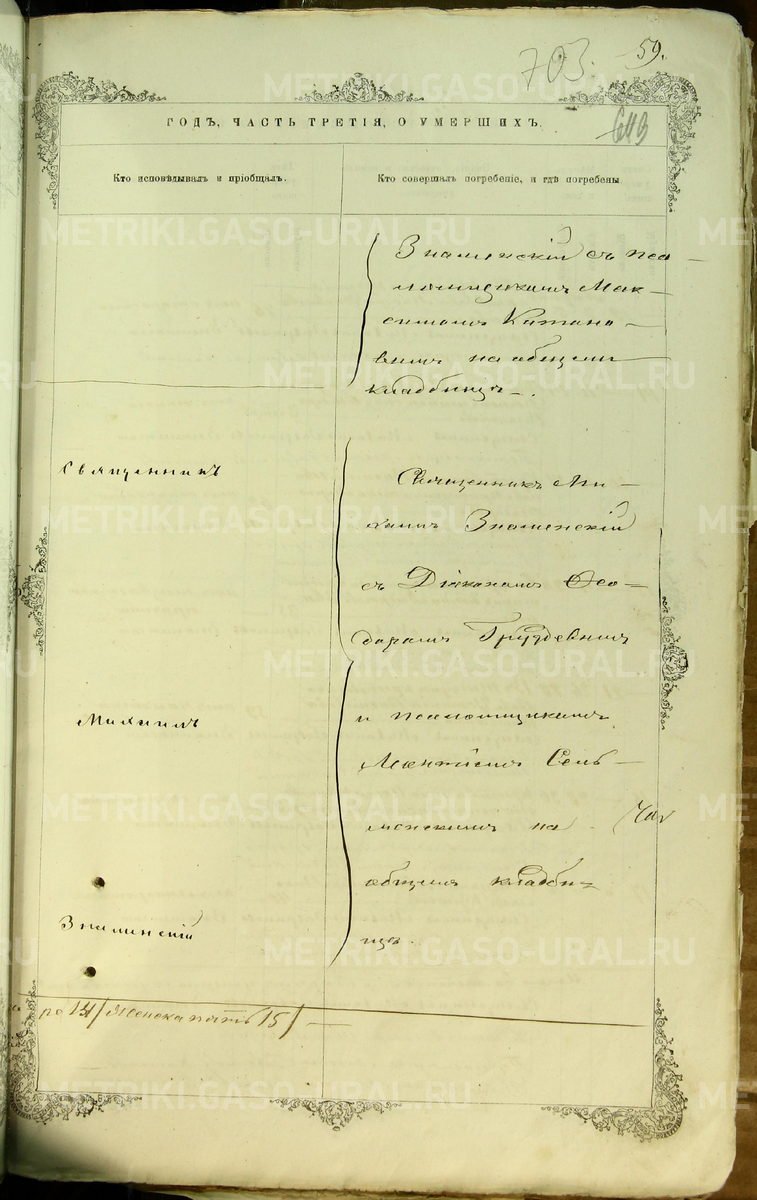 703.
59.
643
ГОДЪ, ЧАСТЬ ТРЕТІЯ, О УМЕРШИХЪ.
Кто исповѣдывалъ и пріобщалъ.
Кто совершалъ погребеніе, и гдѣ погребены.
Знаменскій съ пса-
ломщикомъ Мак-
симомъ Катано-
вымъ на общемъ
кладбищѣ.
Священникъ
Михаилъ
Знаменскій
Священникъ Ми-
хаилъ Знаменскій
съ Діакономъ Ѳео-
доромъ Груздевымъ
и псаломщикомъ
на
общемъ кладби-
щѣ.
METRIKI.GASO-URAL.RU